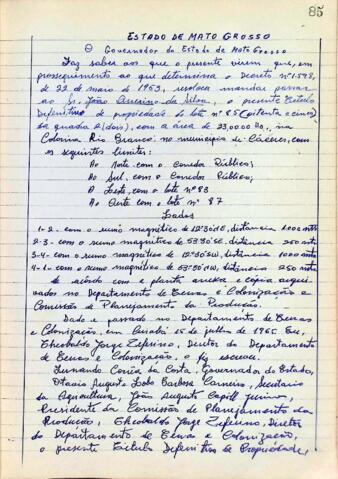 85
ESTADO DE MATO GROSSO
O Governador do Estado de Mato Grosso
Faz saber aos que o presente virem que, em
prosseguimento ao que determina o Decreto nº 1598,
de 22 de maio de 1953, resolveu mandar passar
ao Sr. João da Silva, o presente Título
Definitivo de propriedade do lote nº 85 (oitenta e cinco)
da quadra 2 (dois), com a área de na
Colonia Rio Branco, no municipio de Cáceres, com
os seguintes limites:
Ao Norte com o Corredor Público;
Ao Sul, com o Corredor Público;
A Leste, com o lote nº 83
Ao Oeste com o lote nº 87
Lados
1-2- com o rumo magnético de 12º30'SE, distancia 1000 mts
2-3- com o rumo magnetico de distancia 250 mts
3-4- com o rumo magnético de distancia 1000 mts
4-1- com o rumo magnético de distancia 250 mts
de acôrdo com a planta anexa e cópia arqui-
vados no Departamento de Terras e Colonização e
Comissão de Planejamento da Produção.
Dado e passado no Departamento de Terras
e Colonização, em Cuiabá 15 de julho de Eu,
Theobaldo Jorge Zeferino, Diretor do Departamento
de Terras e Colonização, o fiz escrever.
Fernando Corrêa da Costa, Governador do Estado,
Otavio Augusto Lobo Barbosa Carneiro, Secretario
da Agricultura, João Augusto
Presidente da Comissão de Planejamento da
Produção, Theobaldo Jorge Zeferino, Diretor
do Departamento de Terras e Colonização,
o presente Titulo Definitivo de Propriedade,